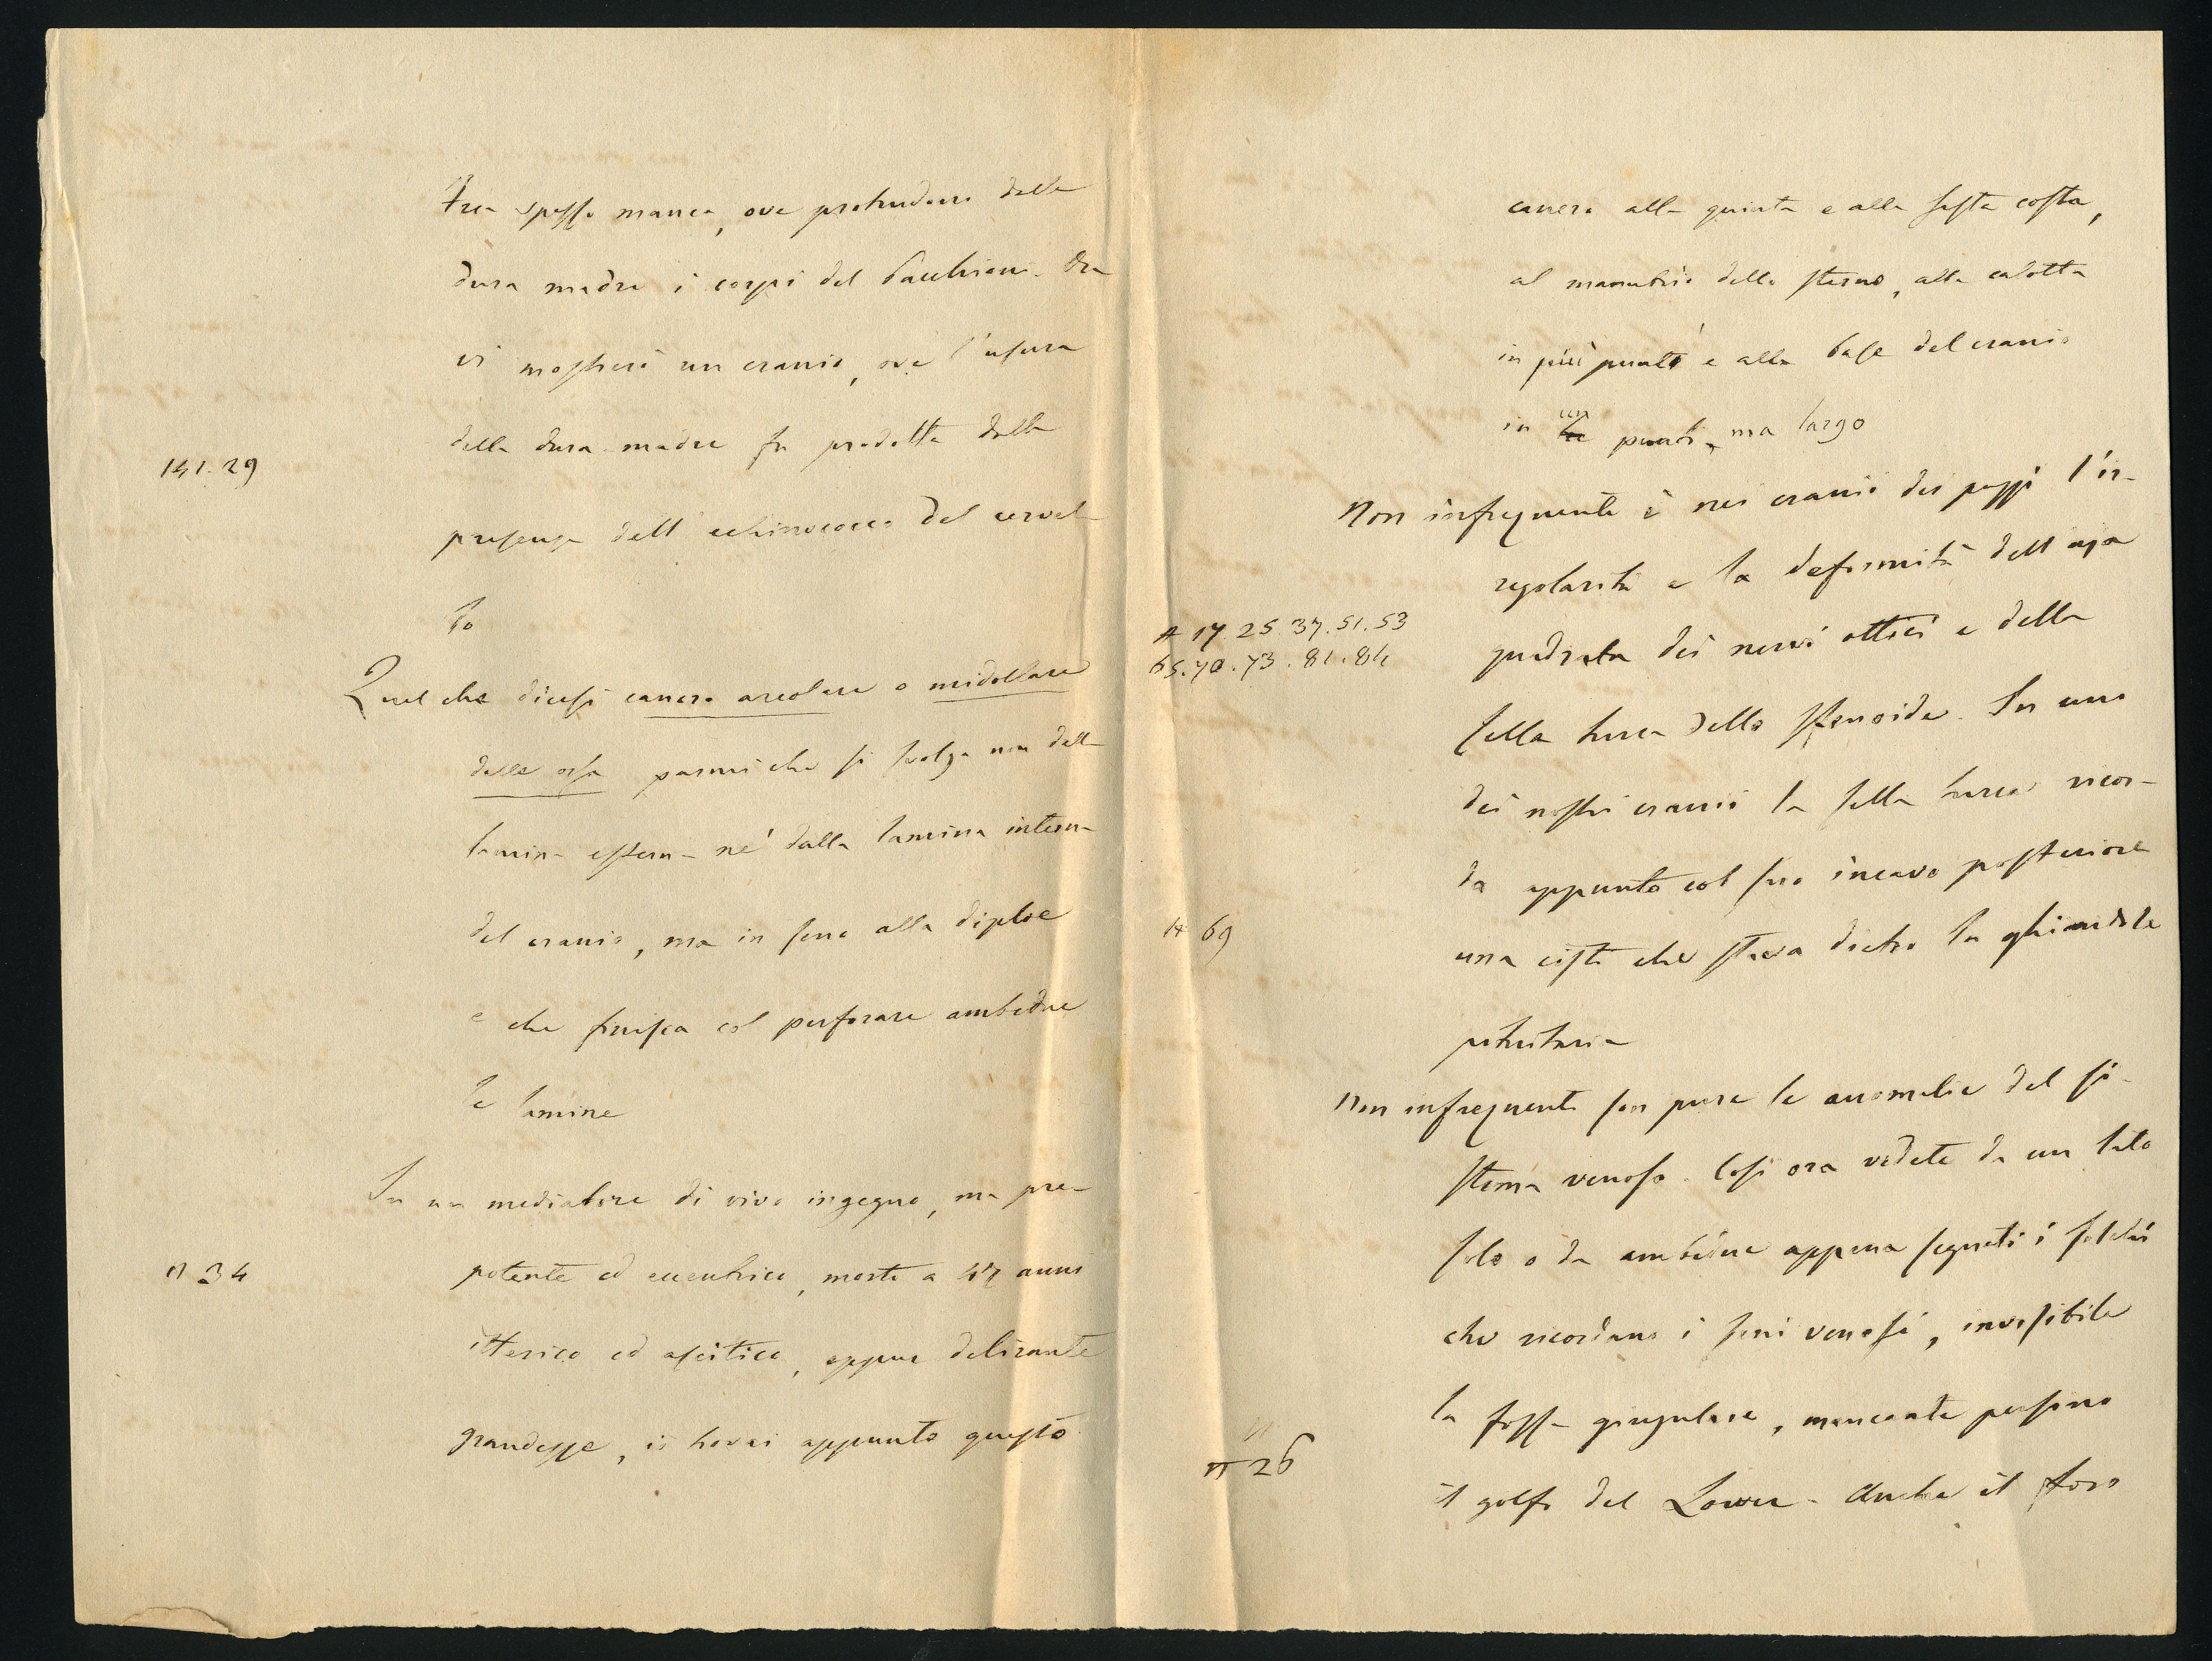 tra spesso manca, ove protrudano dalla
dura madre i corpi del Pacchioni. Ora
vi mostrerò un cranio, ove l'usura
della dura madre fu prodotta dalla
141. 29
presenza dell'echinococco del cervel
lo
Quel che dicesi cancro areolare o midollare
delle ossa parmi che si svolga non dalla
lamina esterna né dalla lamina interna
del cranio, ma in seno alla diploe
e che finisca col perforare ambedue
le lamine
In un mediatore di vivo ingegno, ma pre-
potente ed eccentrico, morto a 47 anni
n 34
itterico ed ascitico, eppur delirante
grandezze, io trovai appunto questo
cancro alla quinta e alla sesta costa,
al manubrio dello sterno, alla calotta
in più punti e alla base del cranio
in un punto, ma largo
Non infrequente è nei crani dei pazzi l'ir-
regolarità e la deformità dell'aja
N 17. 25. 37. 51. 53
65. 70. 73. 81. 84
quadrata dei nervi ottici e della
sella turca dello sfenoide. In uno
dei nostri crani la sella turca ricor-
da appunto col suo incavo posteriore
N 69
una cisti che stava dietro la ghiandola
pituitaria
Non infrequenti son pure le anomalie del si-
stema venoso. Così ora vedete da un lato
solo o da ambedue appena segnati i solchi
che ricordano i seni venosi, invisibile
la fossa giugulare, mancante persino
n 26
il golfo del Lower. Anche il foro